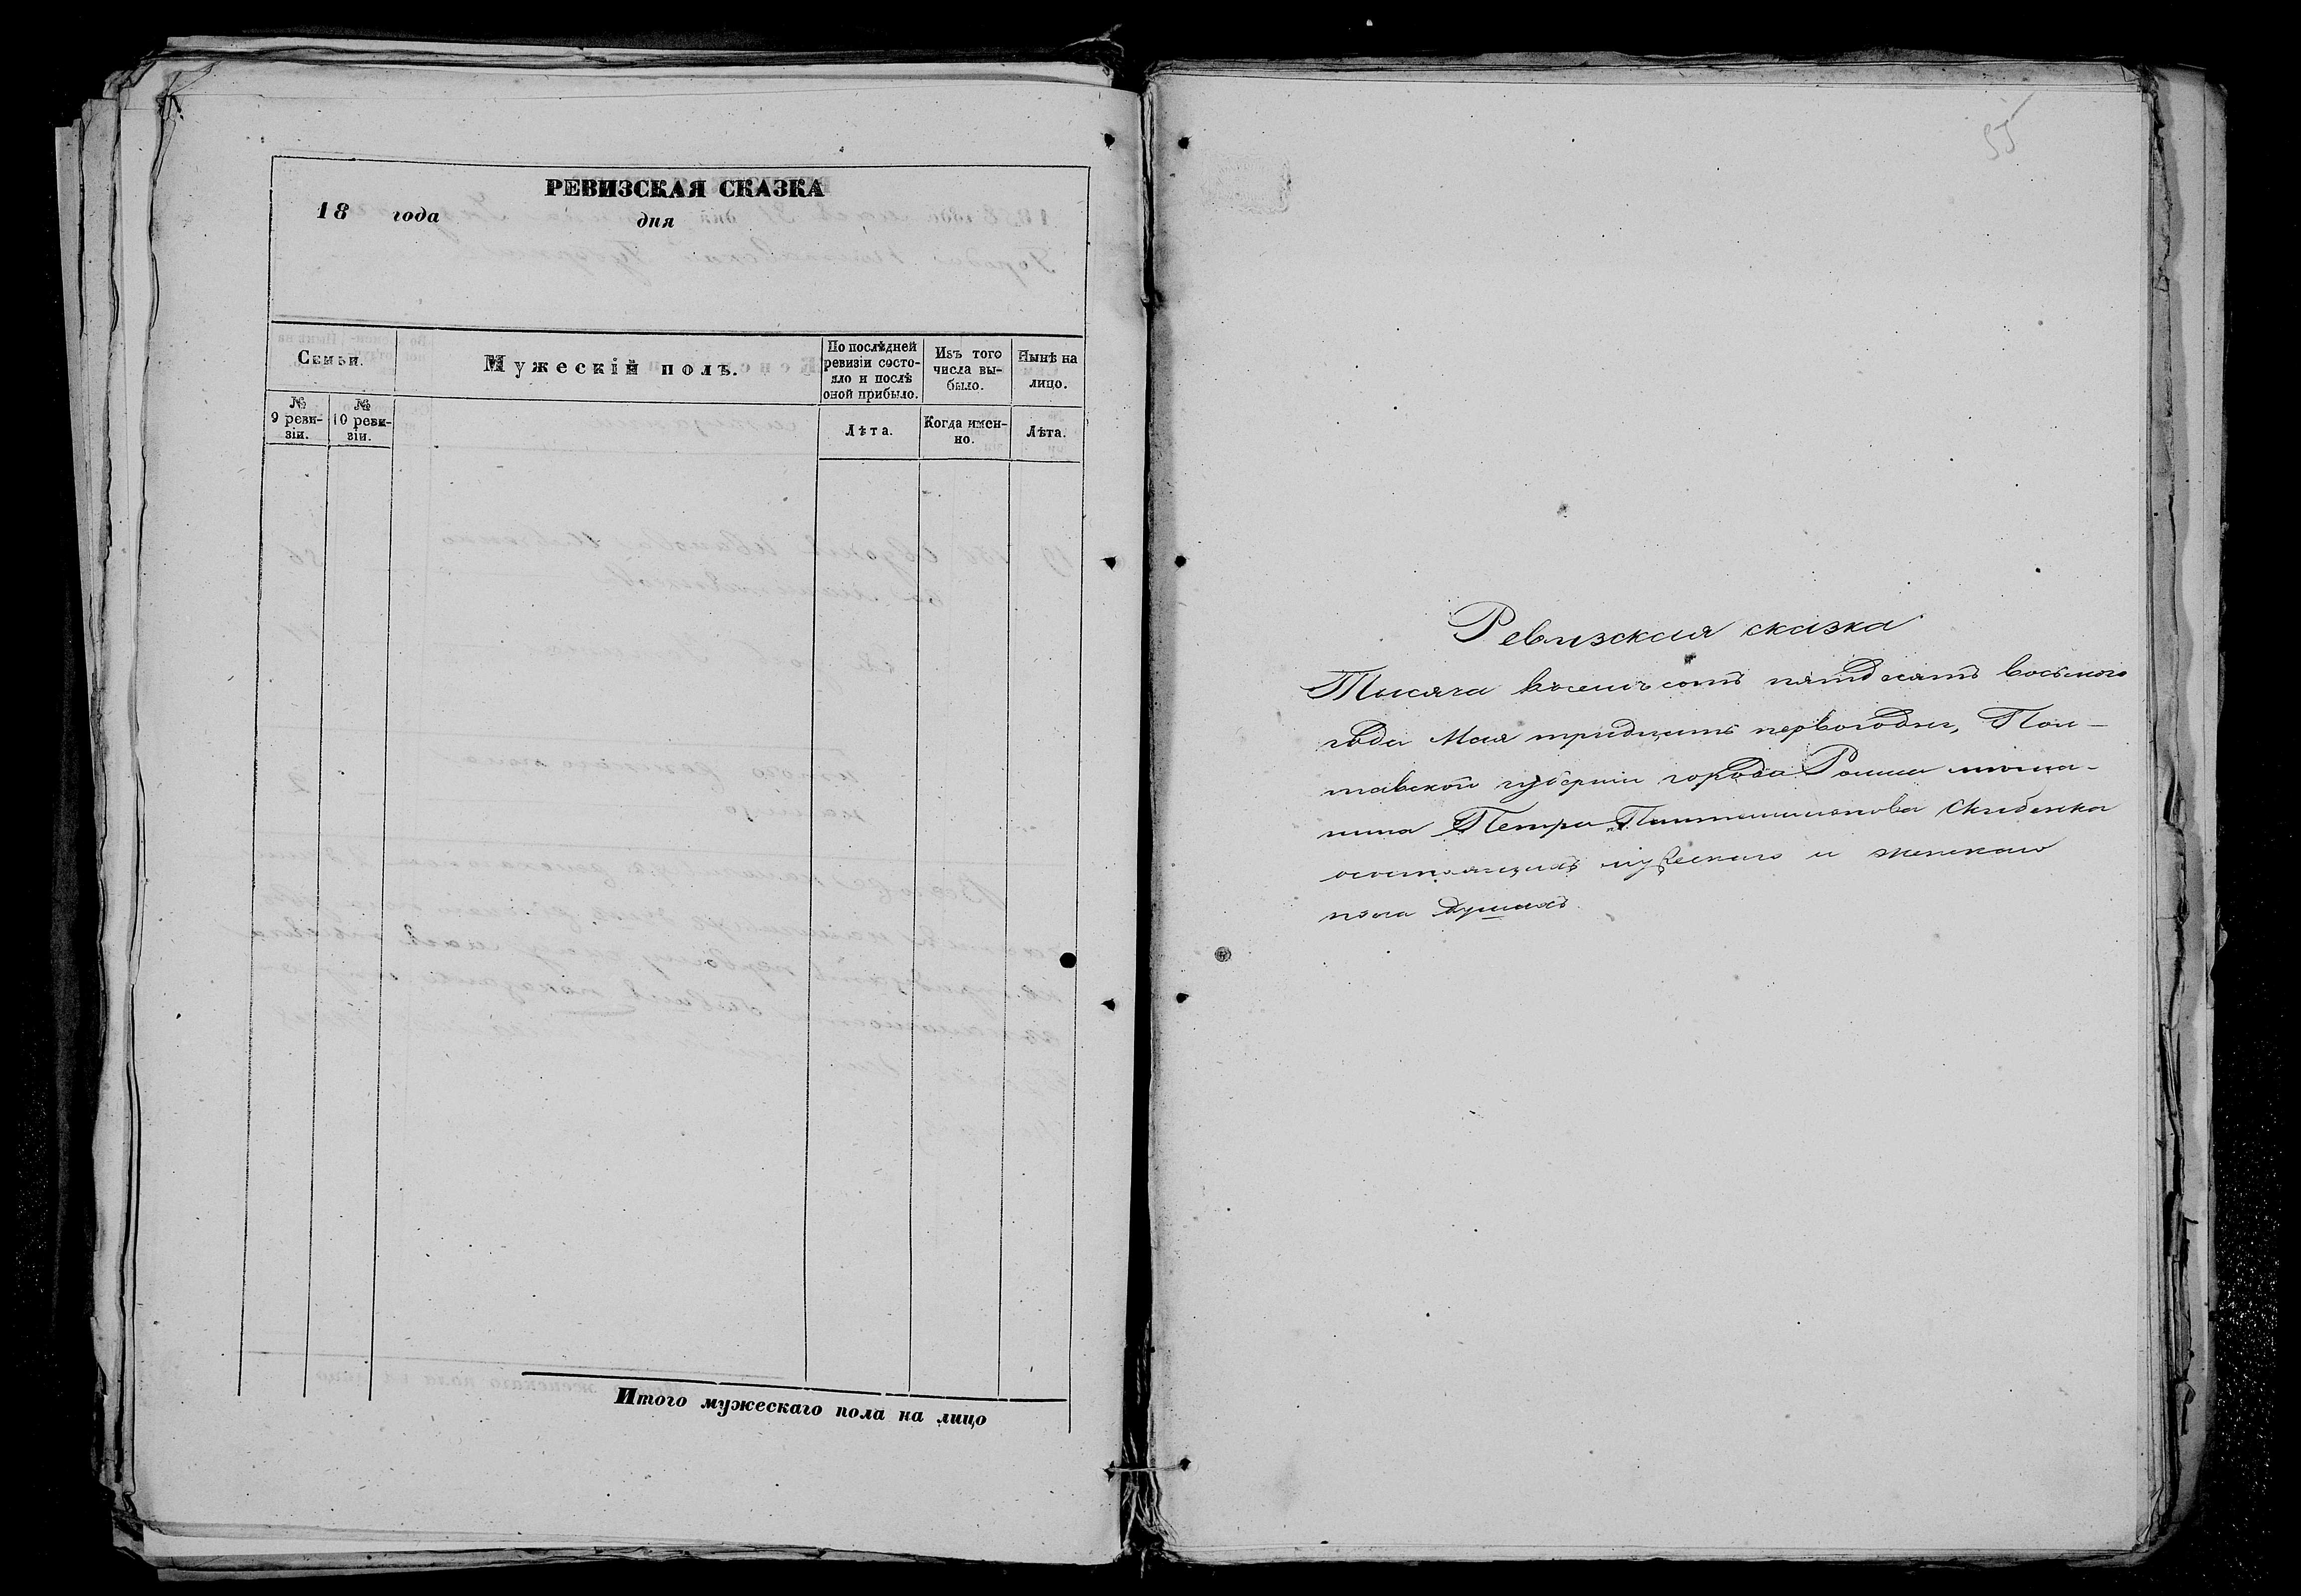 РЕВИЗСКАЯ СКАЗКА
18 года дня
Семьи.
Мужескій полъ.
По послѣдней ревизіи состо-
яло и послѣ оной прибыло.
Изъ того числа вы-
было.
Нынѣ на лицо.
№ 9 реви-
зіи.
№ 10 реви-
зіи.
Лѣта.
Когда имен-
но.
Лѣта.
Итого мужескаго пола на лицо
55
Ревизская сказка
Тысяча восемъ сотъ пятдесятъ восьмого
года Мая тридцать первогодня, Пол-
тавской губерніи города Ромна мѣща-
нина Петра Скибенка
состоящихъ мужескаго и женскаго
пола душахъ